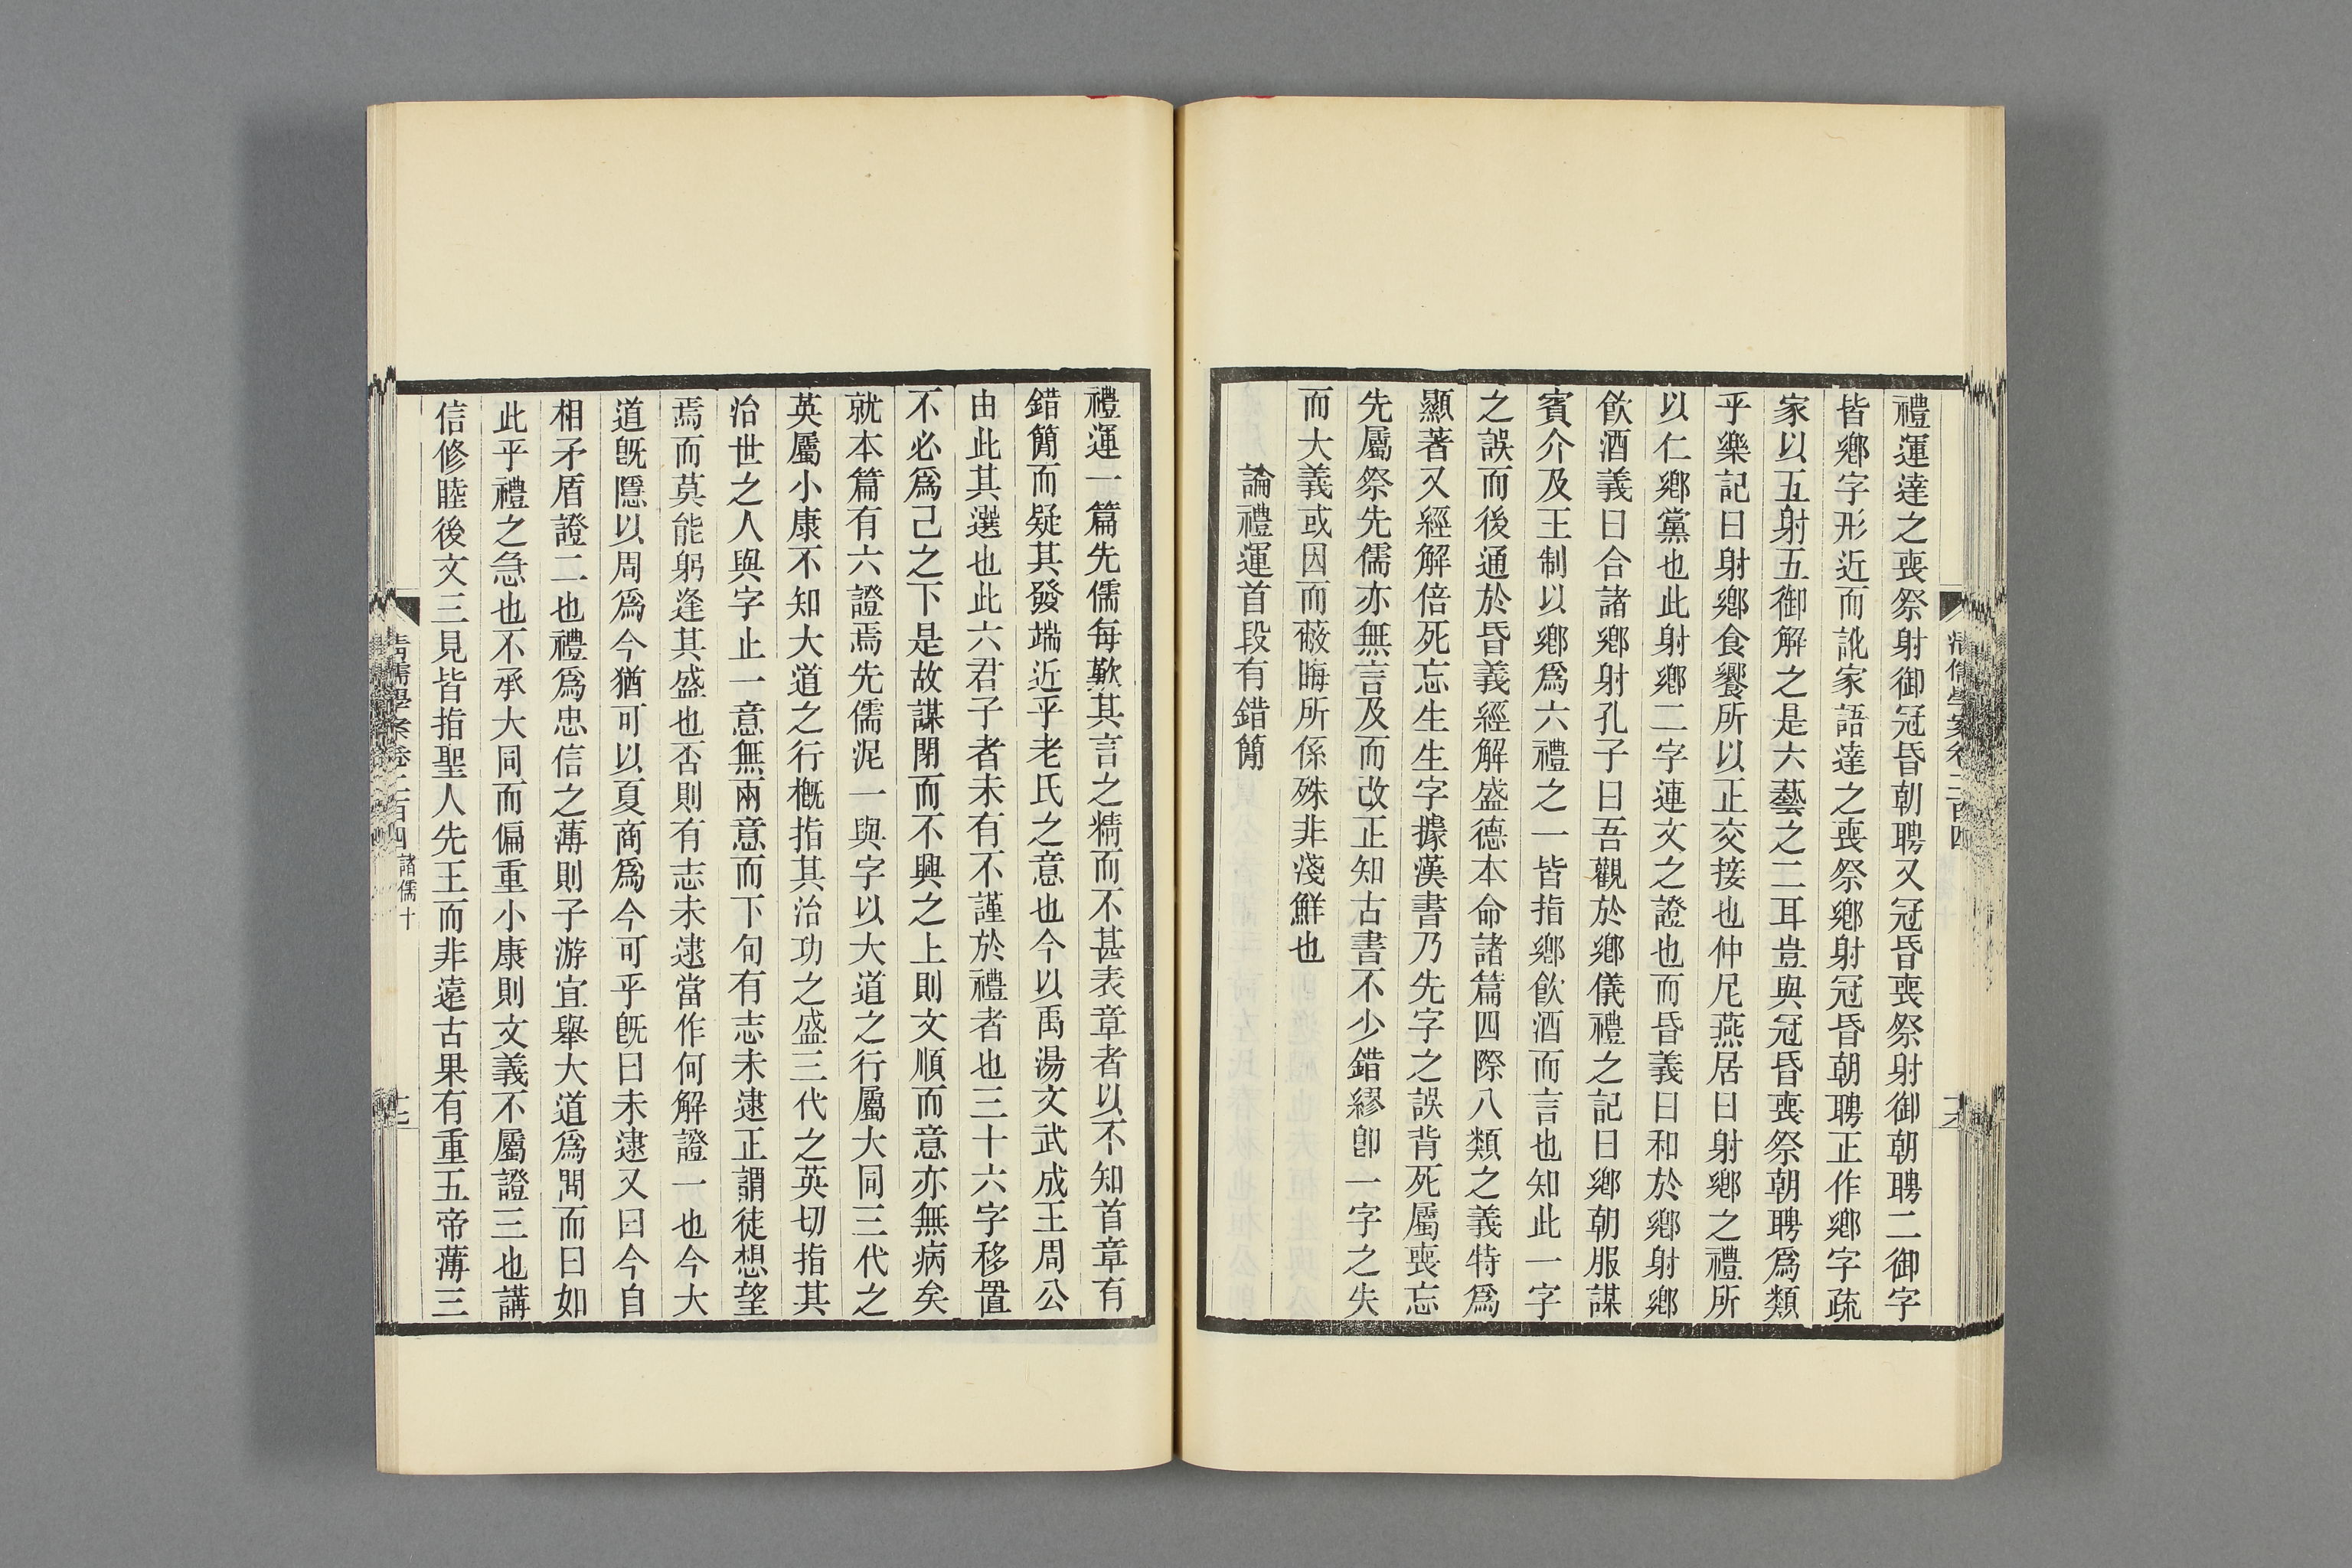 禮運達之喪祭射御冠昏朝聘又冠昏喪祭射御朝聘二御字
皆鄉字形近而訛家語達之喪祭鄉射冠昏朝聘正作鄉字疏
家以五射五御解之是六藝之二耳豈與冠昏喪祭朝聘爲類
乎樂記曰射鄉食饗所以正交接也仲尼燕居曰射鄉之禮所
以仁鄉黨也此射鄉二字連文之證也而昏義曰和於鄉射鄉
飮酒義曰合諸鄉射孔子曰吾觀於鄉儀禮之記曰鄉朝服謀
賓介及王制以鄉爲六禮之一皆指鄉飮酒而言也知此一字
之誤而後通於昏義經解盛德本命諸篇四際八類之義特爲
顯著又經解倍死忘生生字據漢書乃先字之誤背死屬喪忘
先屬祭先儒亦無言及而改正知古書不少錯繆卽一字之失
而大義或因而蔽晦所係殊非淺鮮也
論禮運首段有錯簡
禮運一篇先儒每歎其言之精而不甚表章者以不知首章有
錯簡而疑其發端近乎老氏之意也今以禹湯文武成王周公
由此其選也此六君子者未有不謹於禮者也三十六字移置
不必爲己之下是故謀閉而不興之上則文順而意亦無病矣
就本篇有六證焉先儒泥一與字以大道之行屬大同三代之
英屬小康不知大道之行槪指其治功之盛三代之英切指其
治世之人與字止一意無兩意而下句有志未逮正謂徒想望
焉而莫能躬逢其盛也否則有志未逮當作何解證一也今大
道旣隱以周爲今猶可以夏商爲今可乎旣曰未逮又曰今自
相矛盾證二也禮爲忠信之薄則子游宜舉大道爲問而曰如
此乎禮之急也不承大同而偏重小康則文義不屬證三也講
信修睦後文三見皆指聖人先王而非遠古果有重五帝薄三
清儒學案卷二百四 諸儒十